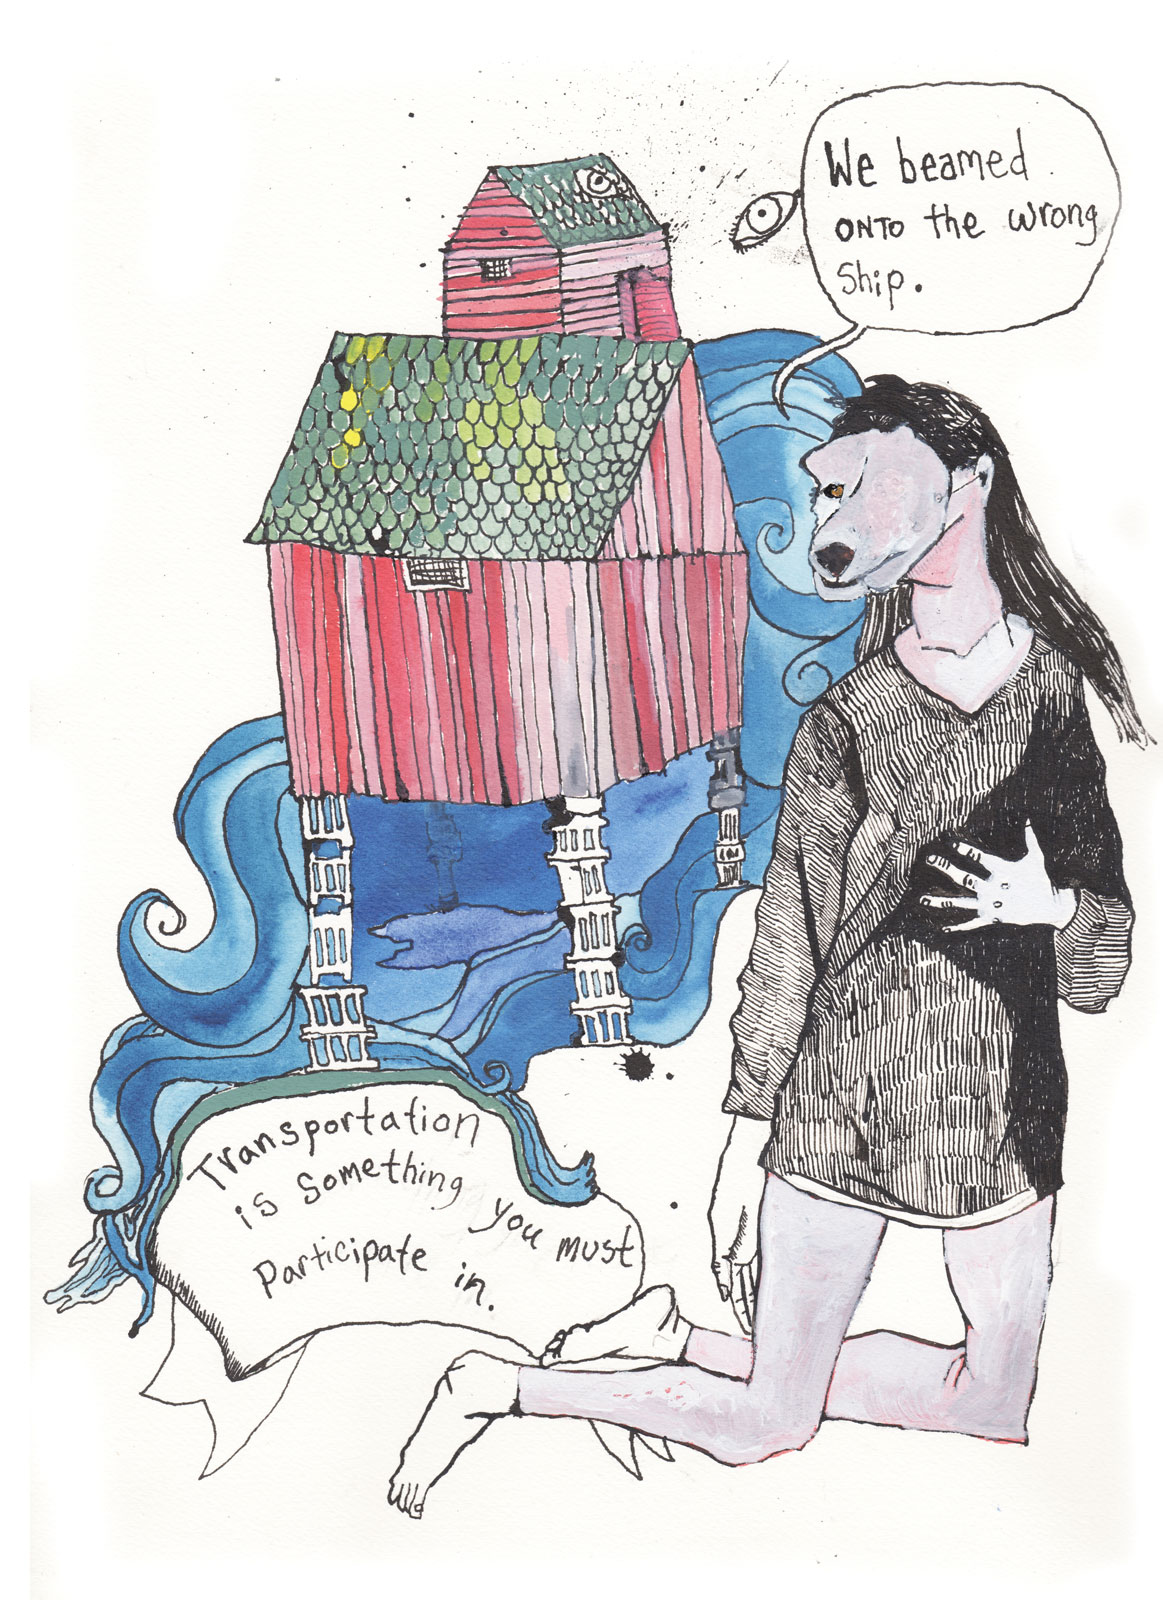 We beamed
ONTO the wrong
Ship.
Transportation
is something you must
Participate in.